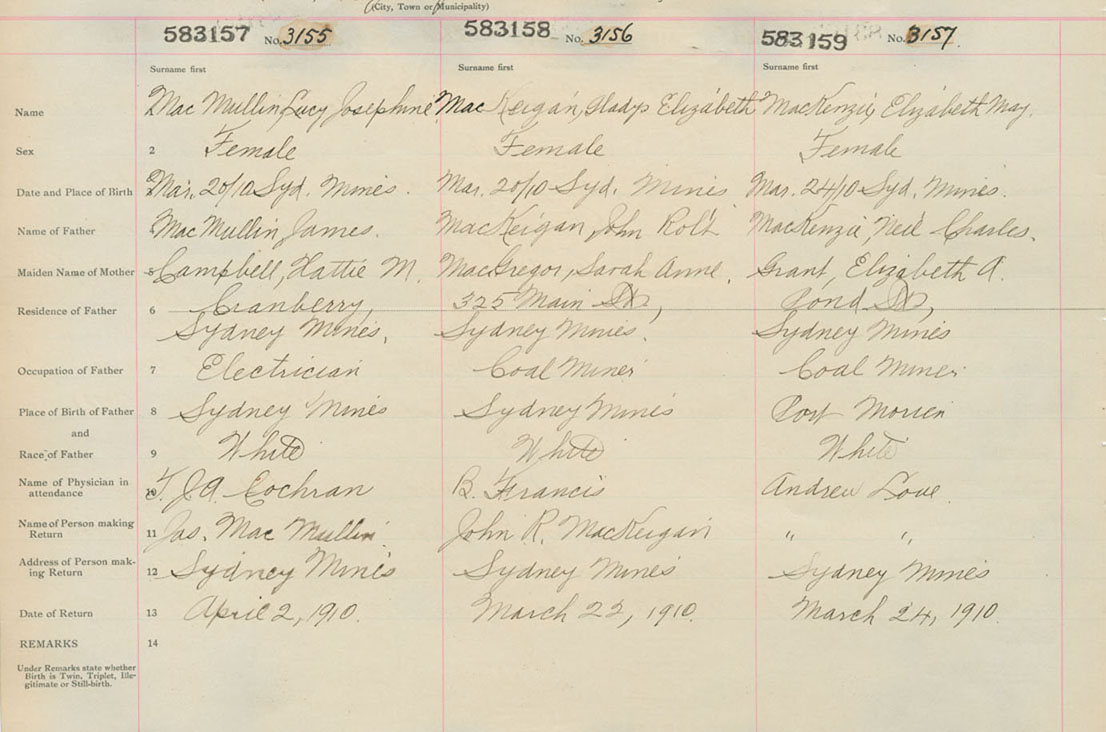 (City, Town or Municipality)
583157 No. 3155 583158 No. 3156 583159 No. 3157
Surname first Surname first Surname first
Name Mac Mullin, Lucy Josephine MacKeigan, Gladys Elizabeth MacKenzie, Elizabeth May.
Sex 2 Female Female Female
Date and Place of Birth Mar. 20/10 Syd. Mines. Mar. 20/10 Syd. Mines Mar. 24/10 Syd. Mines.
Name of Father MacMullin, James. MacKeigan, John Robt MacKenzie, Neil Charles.
Maiden Name of Mother 5 Campbell, Hattie M. MacGregor, Sarah Anne. Grant, Elizabeth A.
Residence of Father 6 Cranberry, 325 Main St, Pond St,
Sydney Mines. Sydney Mines. Sydney Mines
Occupation of Father 7 Electrician Coal Miner Coal Miner
Place of Birth of Father 8 Sydney Mines Sydney Mines Port Morien
and
Race of Father 9 White White White
Name of Physician in
attendance 10 J. A. Cochran B. Francis Andrew Love.
Name of Person making
Return 11 Jas. Mac Mullin. John R. MacKeigan " "
Address of Person mak-
ing Return 12 Sydney Mines Sydney Mines Sydney Mines
Date of Return 13 April 2, 1910. March 22, 1910. March 24, 1910.
REMARKS 14
Under Remarks state whether
Birth is Twin, Triplet, Ille-
gitimate or Still-birth.